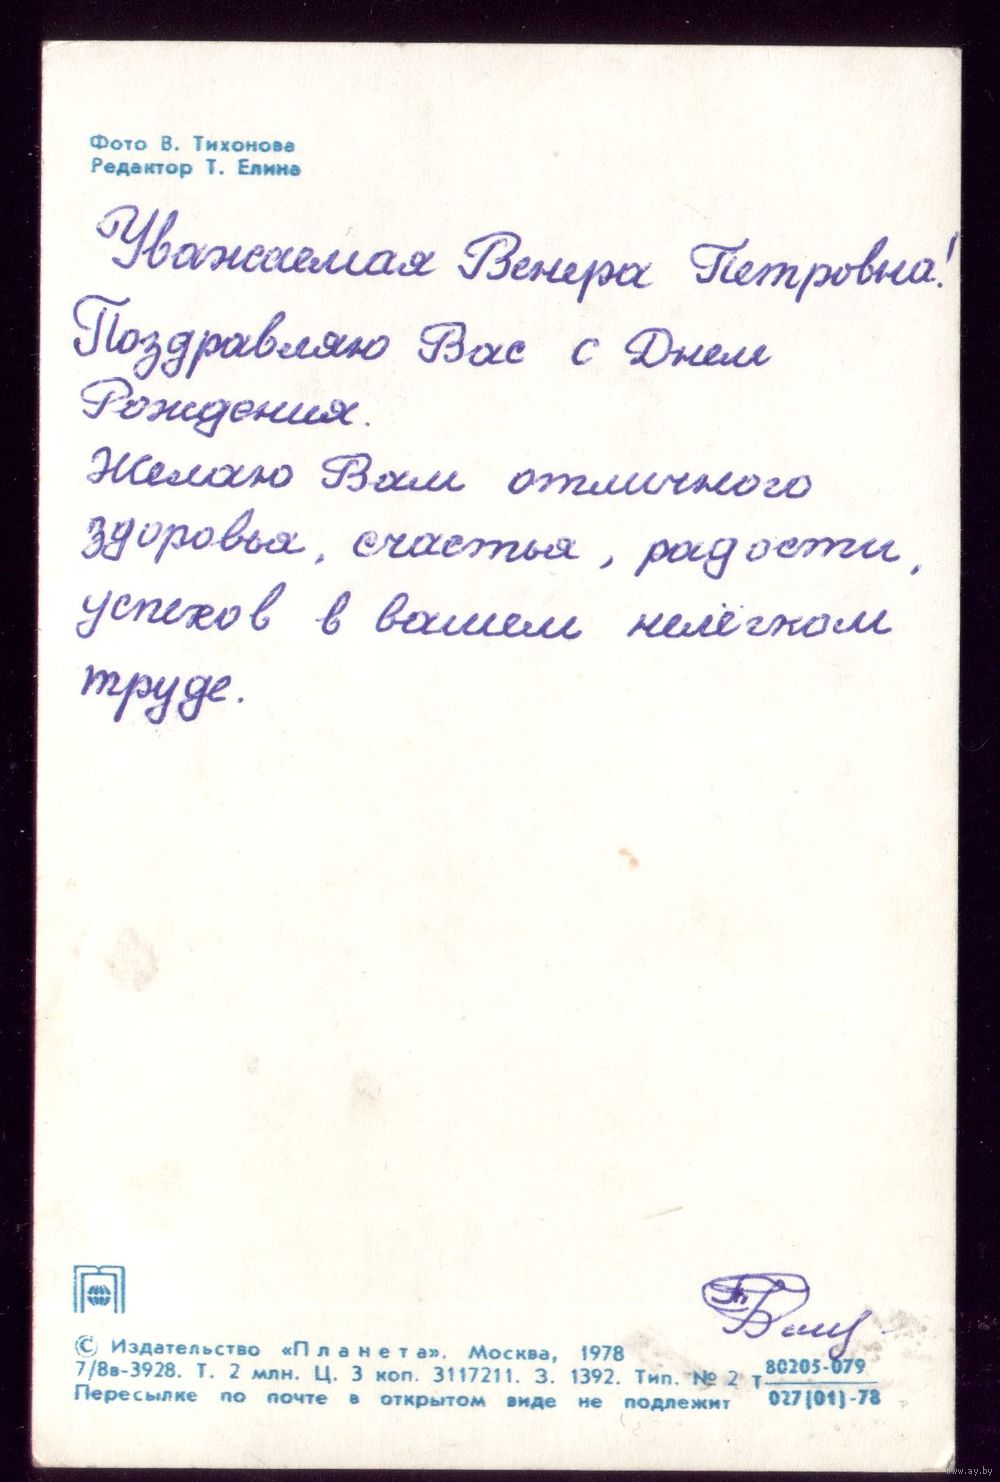 Фото В. Тихонова
Редактор Т. Елина
Уважаемая Венера Петровна!
Поздравляю Вас с Днем
Рождения.
Желаю Вам отличного
здоровья, счастья, радости,
успехов в вашем нелёгком
труде.
© Издательство «Планета». Москва, 1978
7/8в-3928. Т. 2 млн. Ц. 3 коп. 3117211. З. 1392. Тип. № 2 Т 80205-079
027(01)-78
Пересылке по почте в открытом виде не подлежит
www.ay.by